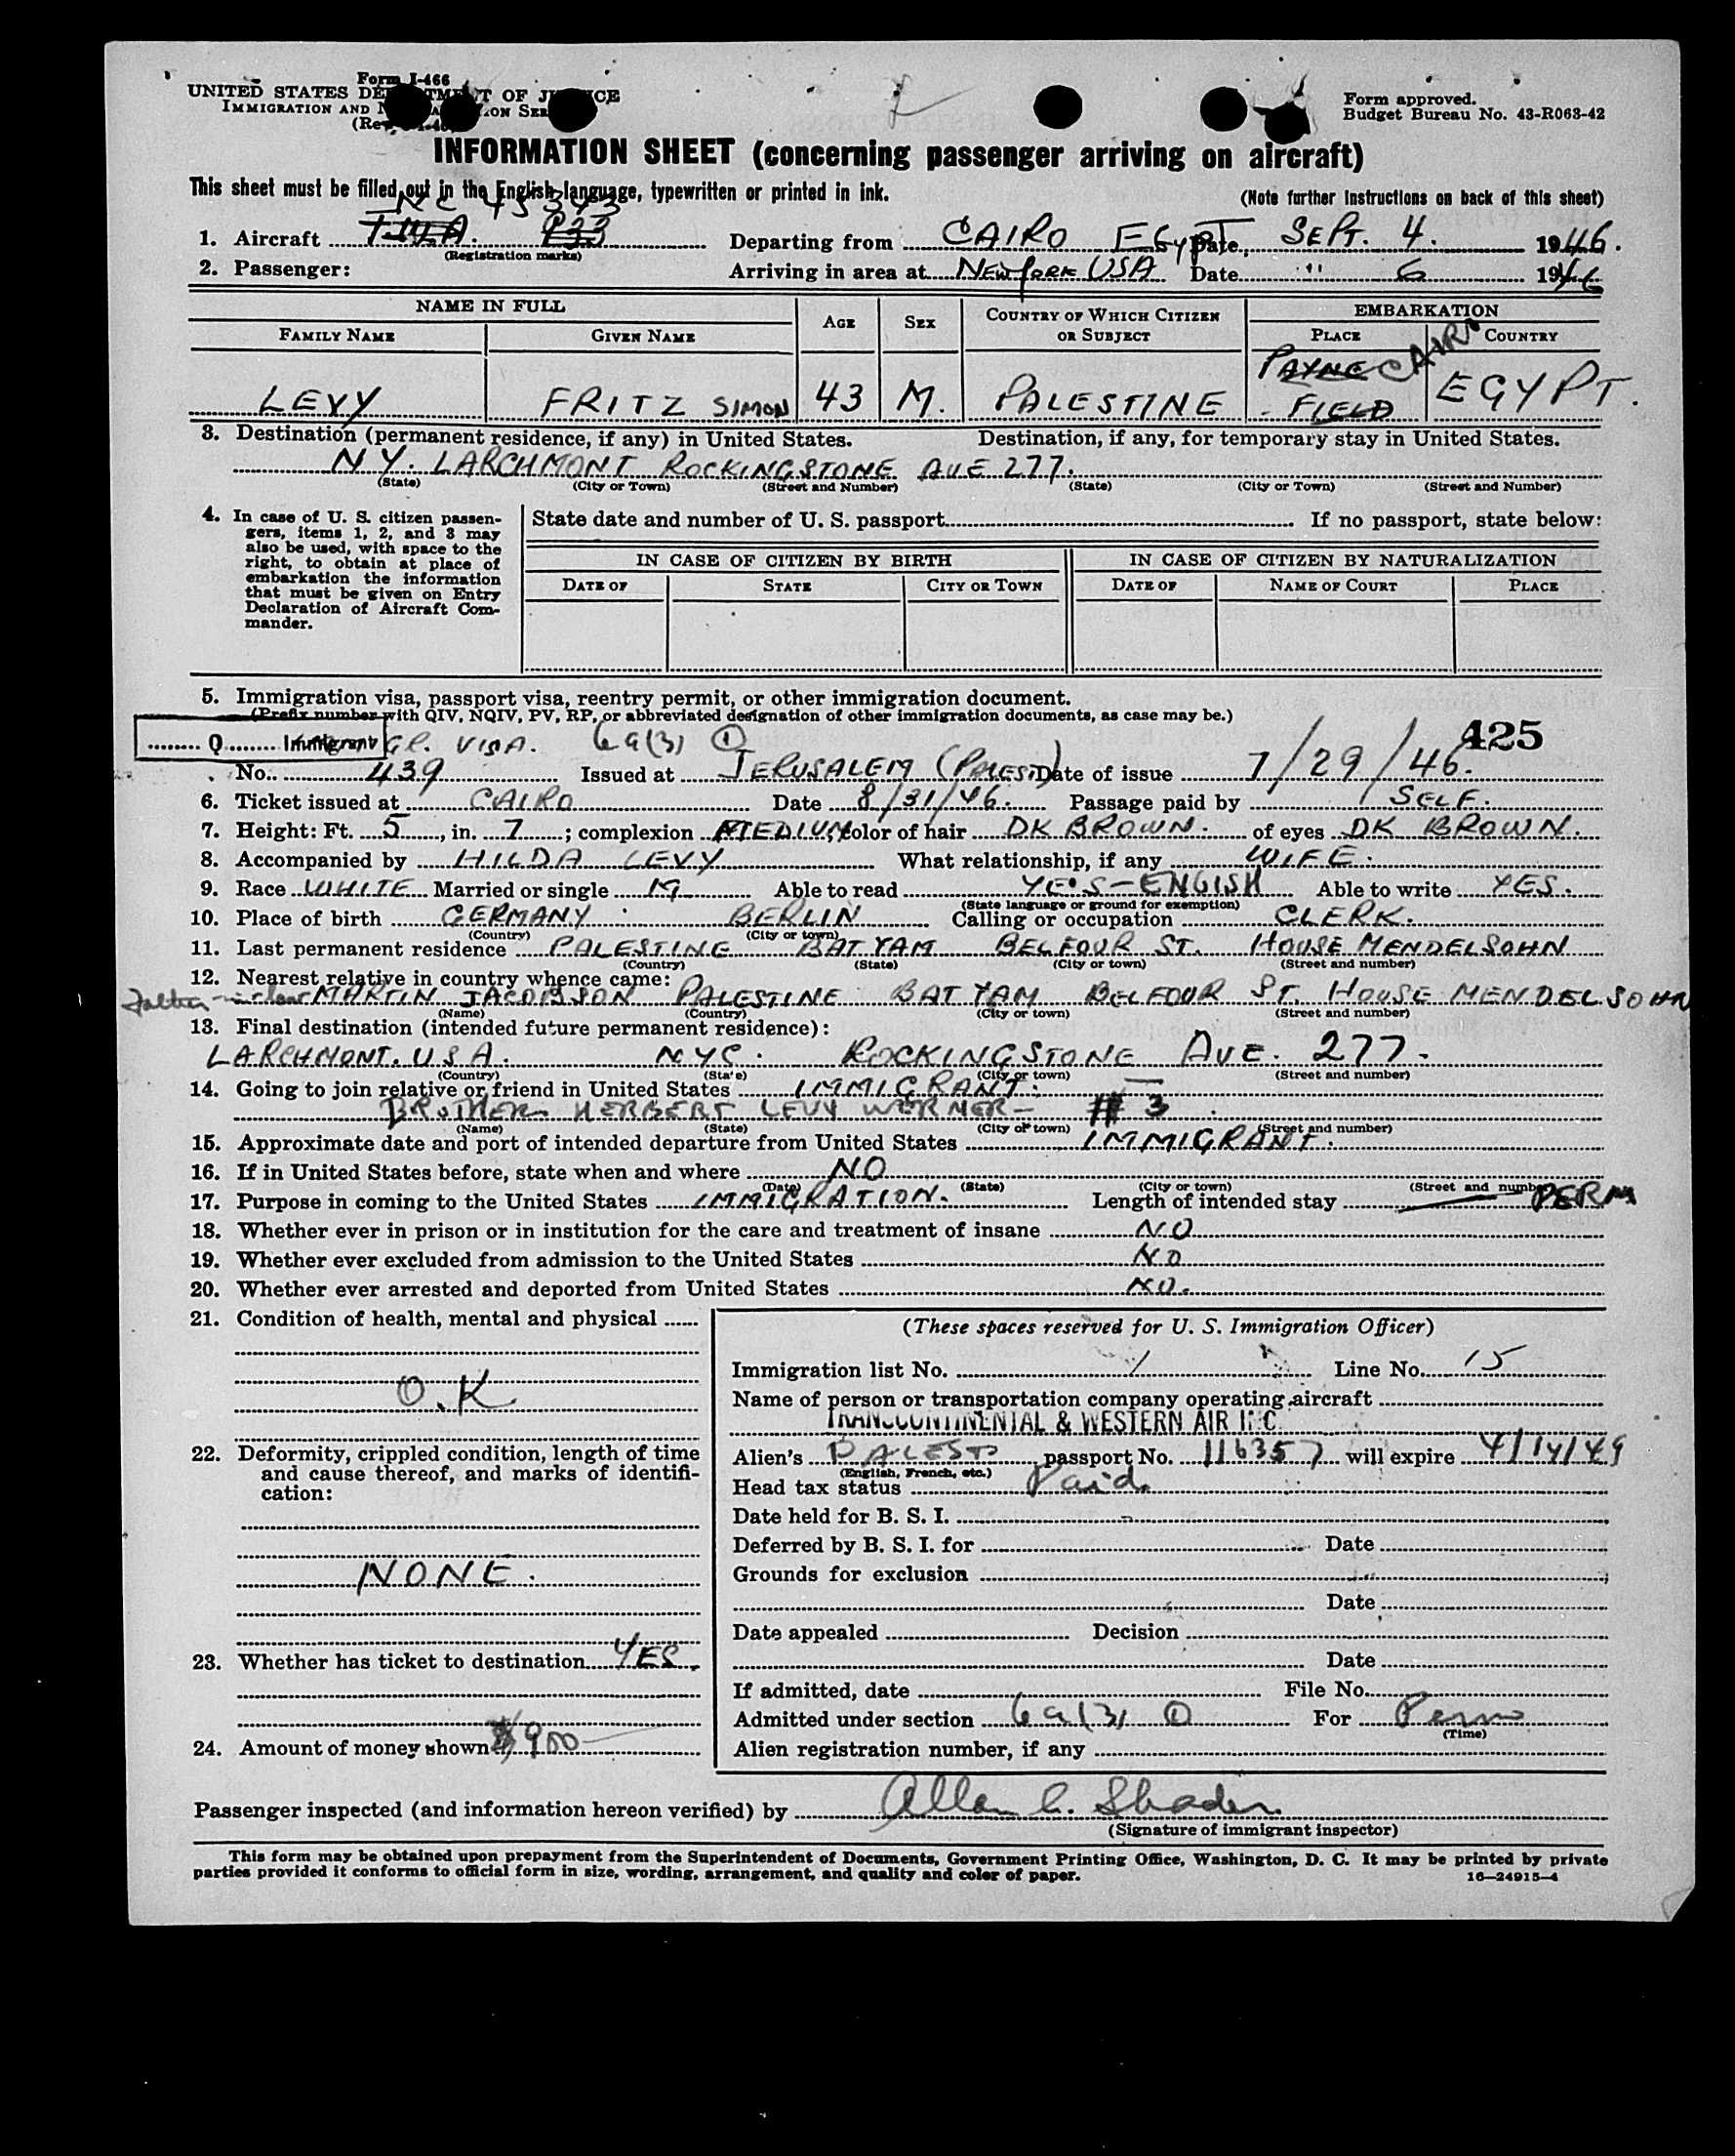 Form I-466
UNITED STATES DEPARTMENT OF JUSTICE
IMMIGRATION AND NATURALIZATION SERVICE
Form approved.
Budget Bureau No. 43-R063-42
INFORMATION SHEET (concerning passenger arriving on aircraft)
This sheet must be filled out in the English language, typewritten or printed in ink. (Note further instructions on back of this sheet)
NC 45343
1. Aircraft T.W.A. 933 Departing from CAIRO EGYPT Date, SEPT. 4. 1946.
(Registration marks)
2. Passenger: Arriving in area at NEW YORK USA Date " 6 1946
NAME IN FULL AGE SEX COUNTRY OF WHICH CITIZEN OR SUBJECT EMBARKATION
FAMILY NAME GIVEN NAME PLACE COUNTRY
PAYNE CAIRO
LEVY FRITZ SIMON 43 M. PALESTINE FIELD EGYPT.
3. Destination (permanent residence, if any) in United States. Destination, if any, for temporary stay in United States.
N.Y. LARCHMONT ROCKINGSTONE AVE 277.
(State) (City or Town) (Street and Number) (State) (City or Town) (Street and Number)
4. In case of U. S. citizen passengers, items 1, 2, and 3 may also be used, with space to the right, to obtain at place of embarkation the information that must be given on Entry Declaration of Aircraft Commander.
State date and number of U. S. passport If no passport, state below:
IN CASE OF CITIZEN BY BIRTH IN CASE OF CITIZEN BY NATURALIZATION
DATE OF STATE CITY OR TOWN DATE OF NAME OF COURT PLACE
5. Immigration visa, passport visa, reentry permit, or other immigration document.
(Prefix number with QIV, NQIV, PV, RP, or abbreviated designation of other immigration documents, as case may be.)
425
Q Immigrant VISA. 6a(3) ①
No. 439 Issued at JERUSALEM (PALEST) Date of issue 7/29/46.
6. Ticket issued at CAIRO Date 8/31/46. Passage paid by SELF.
7. Height: Ft. 5, in. 7; complexion MEDIUM; color of hair DK BROWN. of eyes DK BROWN.
8. Accompanied by HILDA LEVY What relationship, if any WIFE.
9. Race WHITE Married or single M Able to read YES-ENGISH Able to write YES.
(State language or ground for exemption)
10. Place of birth GERMANY BERLIN Calling or occupation CLERK.
(Country) (City or town)
11. Last permanent residence PALESTINE BAT YAM BELFOUR ST. HOUSE MENDELSOHN
(Country) (State) (City or town) (Street and number)
12. Nearest relative in country whence came:
Father-in-law MARTIN JACOBSON PALESTINE BAT YAM BELFOUR ST. HOUSE MENDELSOHN
(Name) (Country) (City or town) (Street and number)
13. Final destination (intended future permanent residence):
LARCHMONT. U.S.A. NYC. ROCKINGSTONE AVE. 277.
(Country) (State) (City or town) (Street and number)
14. Going to join relative or friend in United States IMMIGRANT.
BROTHER HERBERT LEVY WERNER- # 3
(Name) (State) (City or town) (Street and number)
15. Approximate date and port of intended departure from United States IMMIGRANT.
16. If in United States before, state when and where NO
(Date) (State) (City or town) (Street and number)
17. Purpose in coming to the United States IMMIGRATION. Length of intended stay PERM
18. Whether ever in prison or in institution for the care and treatment of insane NO
19. Whether ever excluded from admission to the United States NO
20. Whether ever arrested and deported from United States NO.
21. Condition of health, mental and physical
O.K
22. Deformity, crippled condition, length of time and cause thereof, and marks of identification:
NONE.
23. Whether has ticket to destination YES.
24. Amount of money shown $900
(These spaces reserved for U. S. Immigration Officer)
Immigration list No. 1 Line No. 15
Name of person or transportation company operating aircraft
TRANSCONTINENTAL & WESTERN AIR INC.
Alien's PALEST passport No. 116357 will expire 4/14/49
(English, French, etc.)
Head tax status Paid
Date held for B. S. I.
Deferred by B. S. I. for Date
Grounds for exclusion
Date
Date appealed Decision
Date
If admitted, date File No.
Admitted under section 6a(3) ① For Perm
(Time)
Alien registration number, if any
Passenger inspected (and information hereon verified) by Allan C. Shader
(Signature of immigrant inspector)
This form may be obtained upon prepayment from the Superintendent of Documents, Government Printing Office, Washington, D. C. It may be printed by private
parties provided it conforms to official form in size, wording, arrangement, and quality and color of paper. 16—24915-4